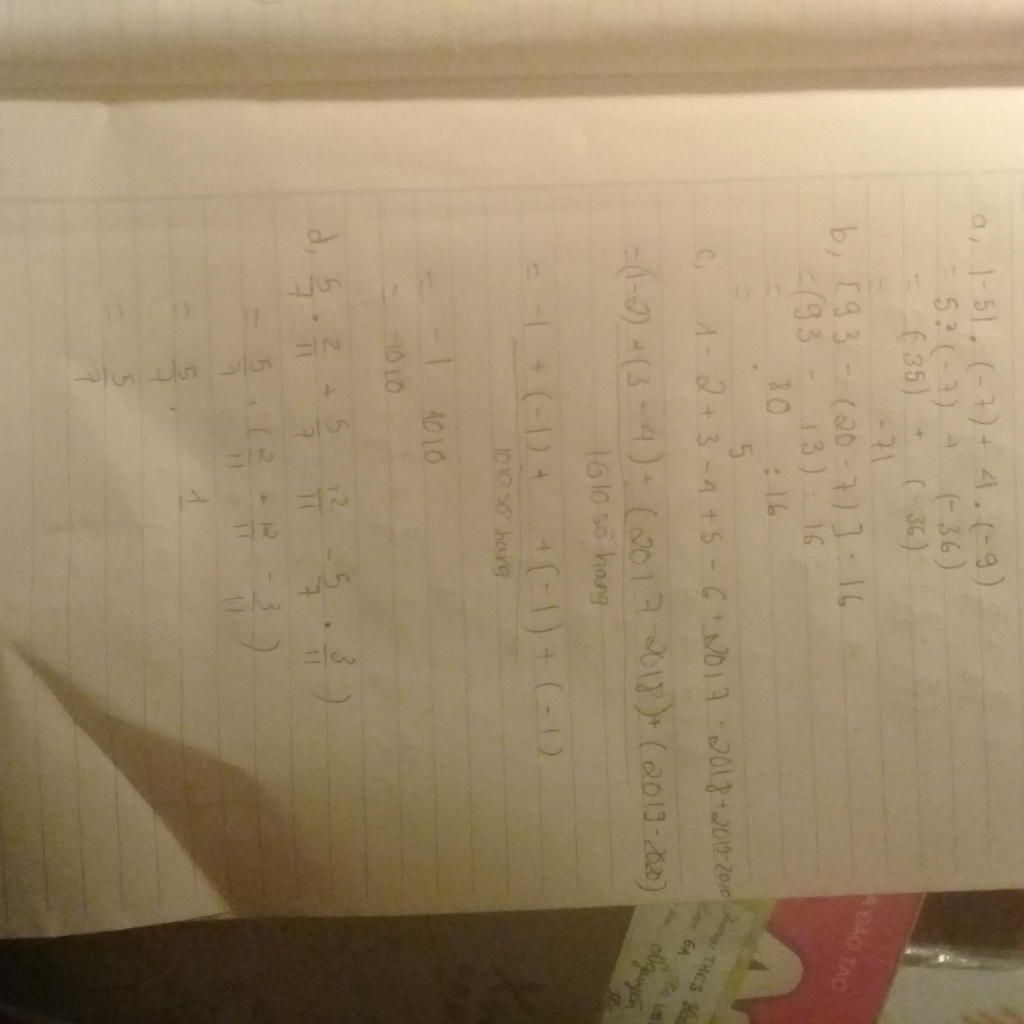 a, |-5|. (-7) + 4. (-9)
= 5.(-7) + (-36)
= (-35) + (-36)
= -71
b, [93 - (20 - 7)] : 16
= (93 - 13) : 16
= 80 : 16
= 5
c, 1 - 2 + 3 - 4 + 5 - 6 + 2017 - 2018 + 2019 - 2020
= (1-2) + (3 - 4) + (2017 - 2018) + (2019 - 2020)
1010 số hạng
= -1 + (-1) + +(-1) + (-1)
1010 số hạng
= -1 . 1010
= -1010
d, 5/7 . 2/11 + 5/7 12/11 - 5/7 . 3/11 )
= 5/7 . ( 2/11 + 12/11 - 3/11 )
= 5/7 . 1
= 5/7
ĐÀO TẠO
THCS
6A
Nguyễn